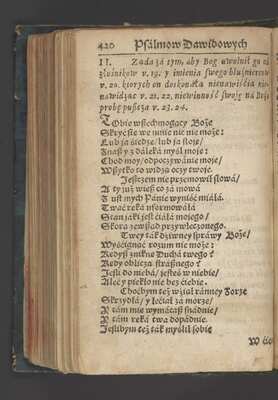 420 Psálmow Dawidowych
II. Żada zá tym, áby Bog uwolnił go od
złosnikow v. 19. y imienia swego bluźniercow
v. 20. ktorych on doskonáłą nienawiścią nie-
nawidząc v. 21. 22. niewinność swoję ná Bożą
probę puszcza v. 23. 24.
TObie wszechmogący Boże
Skryć sie we mnie nic nie może:
Lub ja siedzę/ lub ja stoję/
Znasz y z dáleká myśl moję:
Chod moy/ odpoczywánie moje/
Wszytko to widzą oczy twoje.
Jeszczem nie przemowił słowá/
A ty już wiesz co zá mowá
Z ust mych Pánie wyniść miáłá.
Twáć ręká uformowáłá
Stan jáki jest ciáłá mojego/
Skorá zewsząd przywleczonego.
Twey ták dziwney spráwy Boże/
Wyścignąć rozum nie może:
Kędysz zniknę Duchá twego?
Kędy oblicżá strászne̋go?
Jeśli do niebá/ jesteś w niebie/
Ale y piekło nie bez ciebie.
Choćbym też wziął ránney Zorze
Skrzydłá/ y leciał zá morze/
Y tám mie wymácasz snádnie/
Y tám ręká twá dopádnie.
Jeslibym też ták myślił sobie